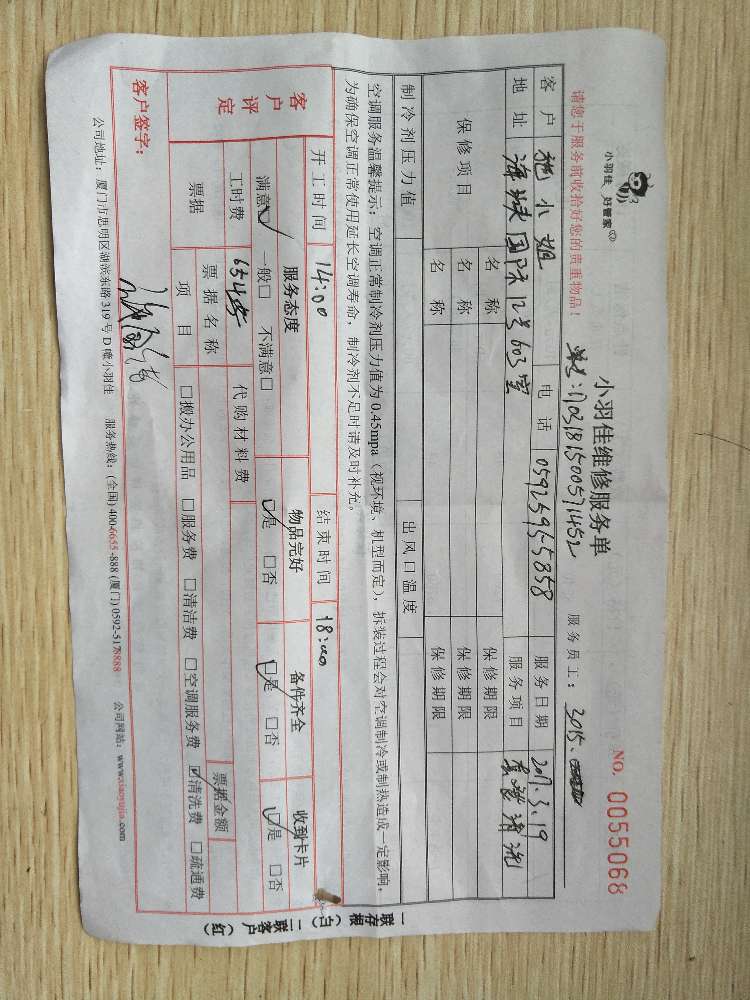 小羽佳 好管家
小羽佳维修服务单
NO. 0055068
请您于服务前收拾好您的贵重物品！
单号：1703181500571452
服务员工：3015、
客户 施小姐 电话 0592595-5858 服务日期 2017.3.19
地址 海峡国际12号603室 服务项目 清洗
保修项目
名称 保修期限
名称 保修期限
名称 保修期限
制冷剂压力值 出风口温度
空调服务温馨提示：空调正常制冷剂压力值为0.45mpa（视环境、机型而定），拆装过程会对空调制冷或制热造成一定影响，
为确保空调正常使用延长空调寿命，制冷剂不足时请及时补充。
开工时间 14:00 结束时间 18:00
客户评定
服务态度 物品完好 备件齐全 收到卡片
满意☑ 一般□ 不满意□ ☑是 □否 ☑是 □否 ☑是 □否
工时费 654 代购材料费
票据 票据名称 票据金额
项目 □搬办公用品 □服务费 □清洁费 □空调服务费 ☑清洗费 □疏通费
客户签字：
公司地址：厦门市思明区湖滨东路319号D幢小羽佳 服务热线：(全国) 400-6655-888 (厦门) 0592-5178888 公司网站：www.xiaoyujia.com
一联存根（白）二联客户（红）